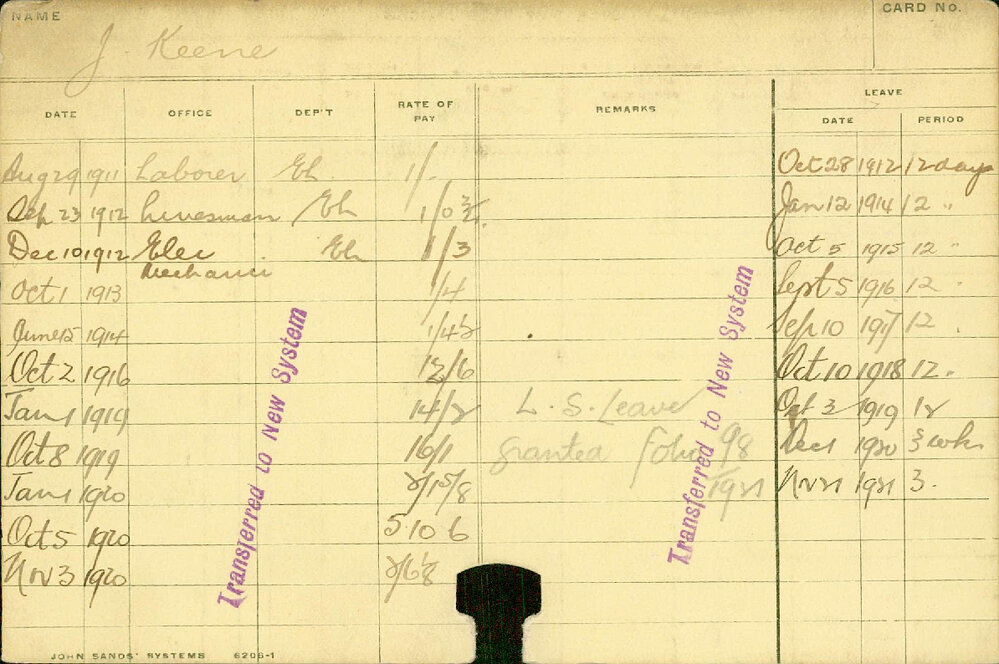 NAME
CARD No.
J. Keene
DATE OFFICE DEP'T RATE OF PAY REMARKS LEAVE
DATE PERIOD
Aug 29 1911 Laborer Eh 1/- Oct 28 1912 12 days
Sep 23 1912 Linesman Eh 1/0 Jan 12 1914 12 "
Dec 10 1912 Elec Mechanic Eh 1/3 Oct 5 1915 12 "
Oct 1 1913 1/4 Sept 5 1916 12 "
June 15 1914 Sep 10 1917 12 "
Oct 2 1916 12/6 Oct 10 1918 12 "
Jan 1 1919 14/2 L.S. Leave Oct 3 1919 12
Oct 8 1919 16/1 granted folio 98 Dec 1 1920 3 wks
Jan 1 1920 2/15/8 1921 Nov 21 1921 3 "
Oct 5 1920 5 10 6
Nov 3 1920
Transferred to New System
Transferred to New System
JOHN SANDS' SYSTEMS 6206-1